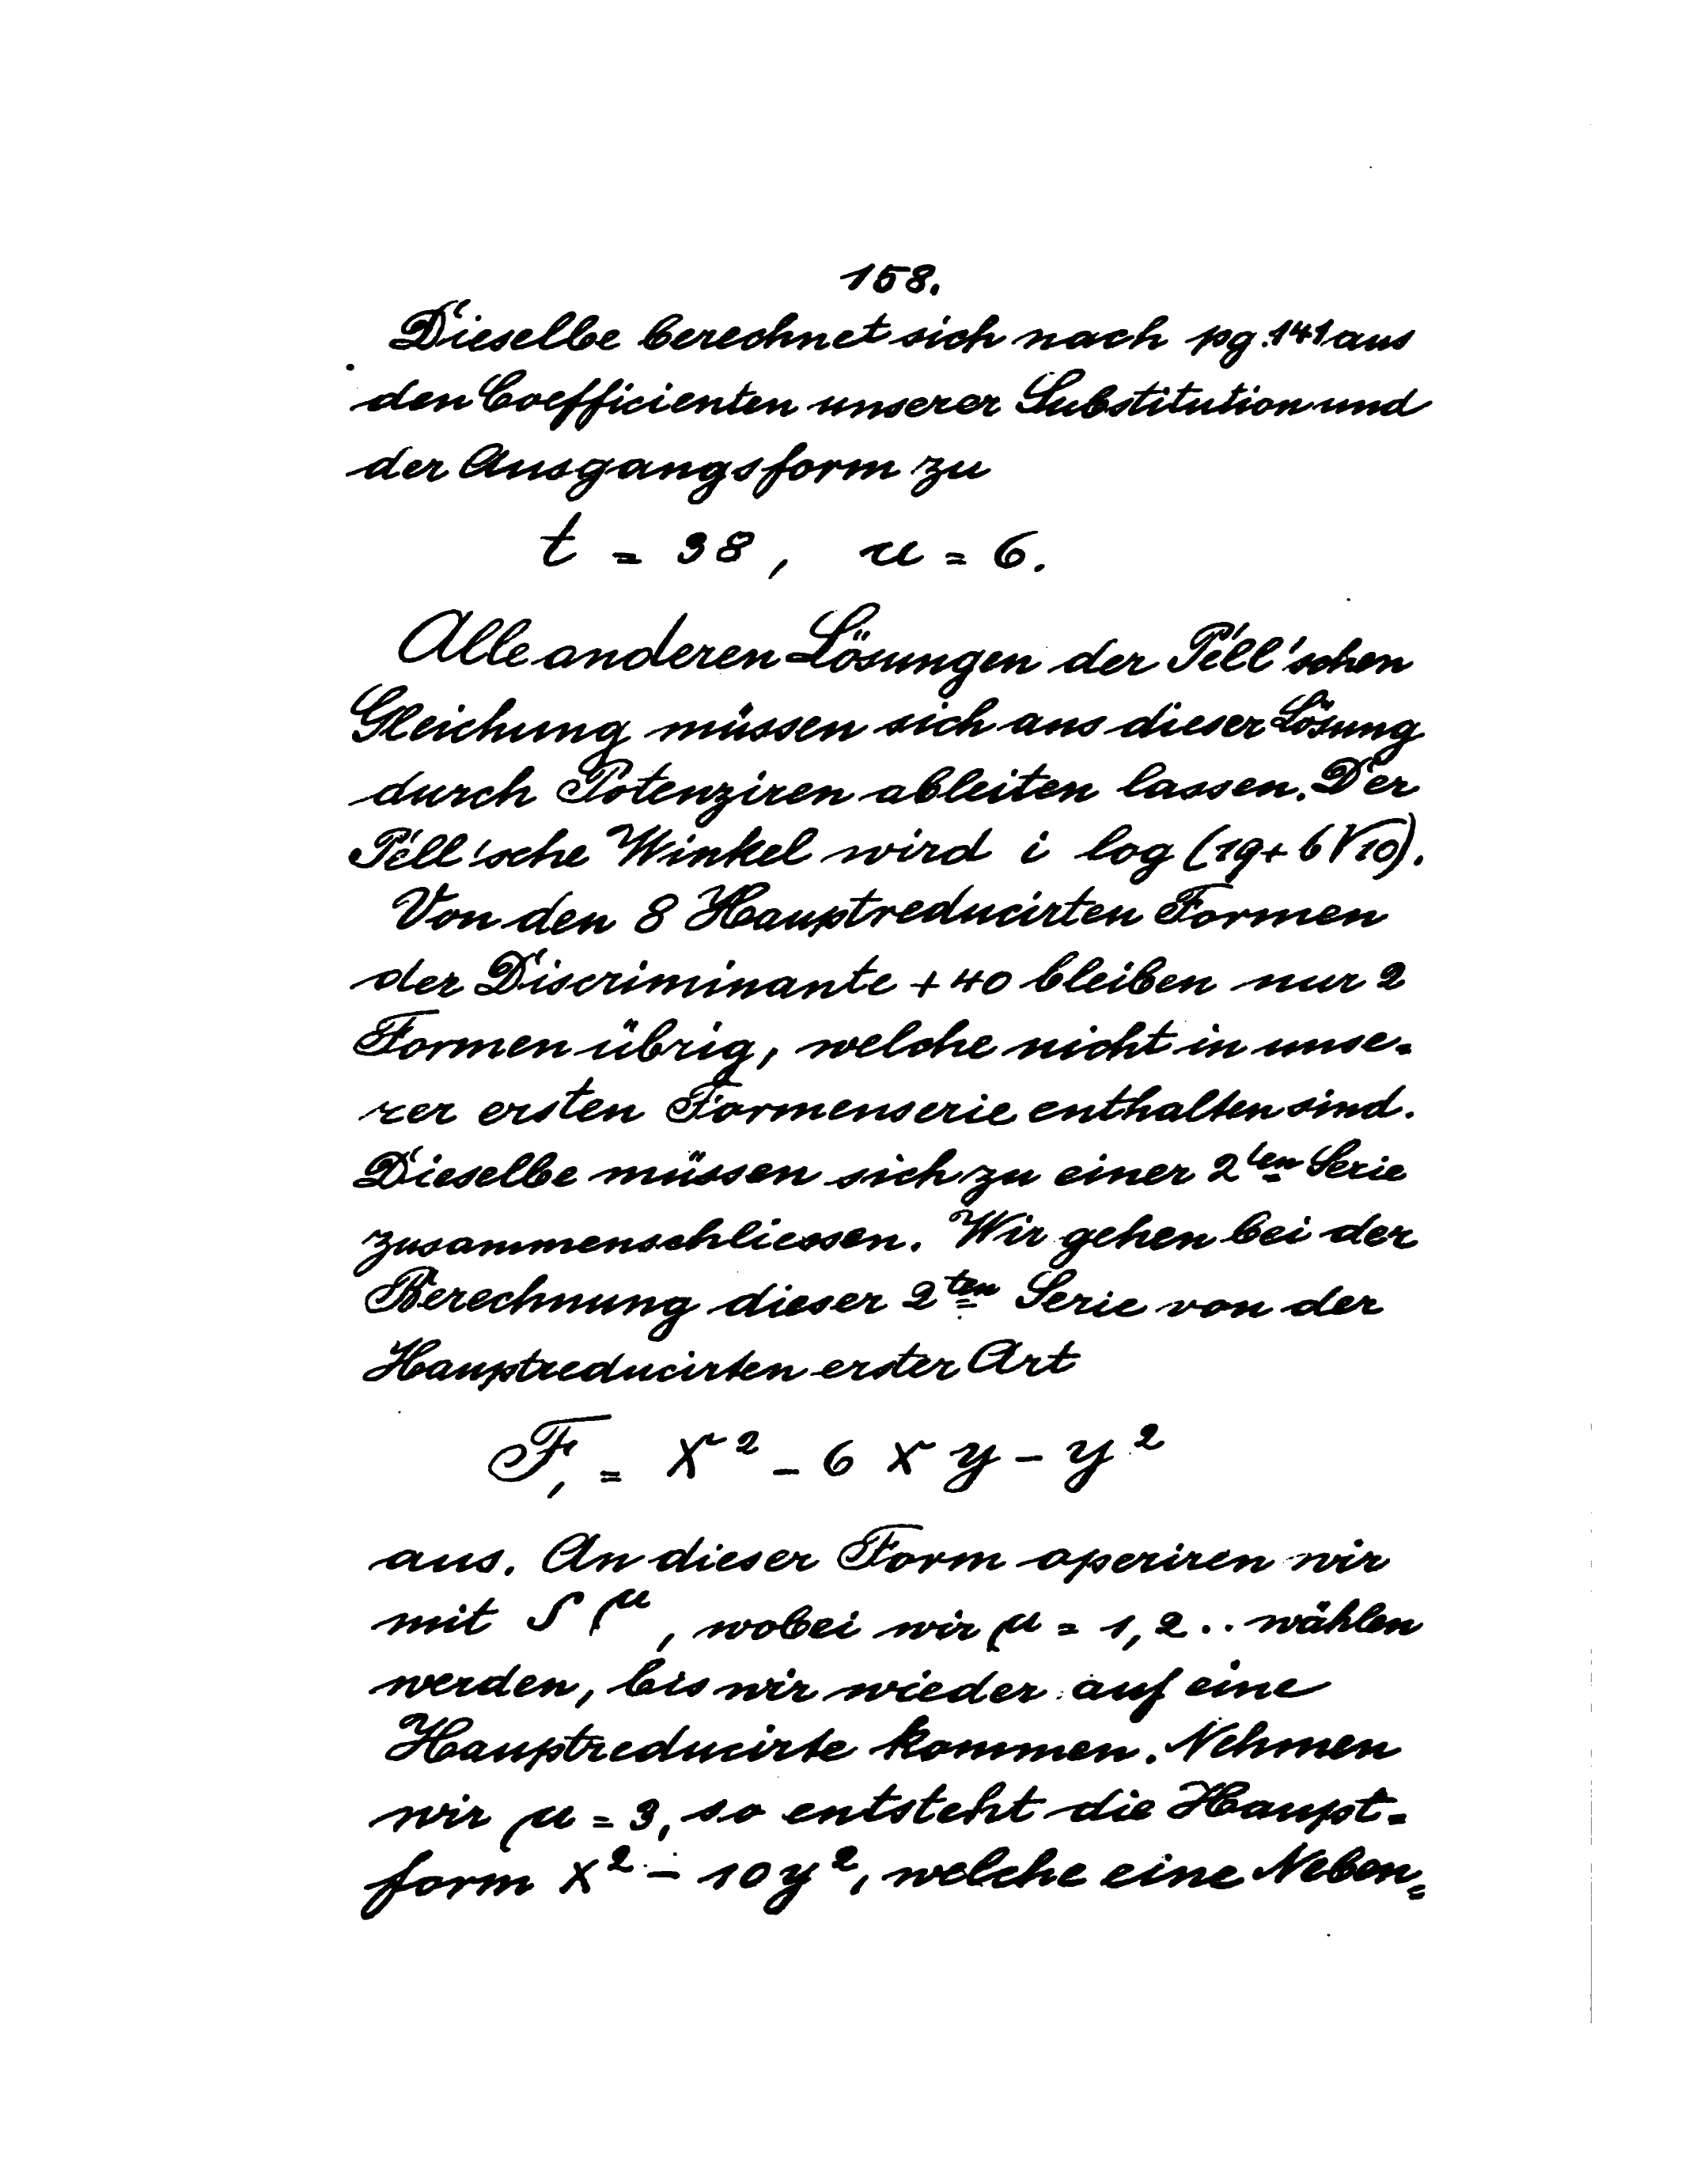 158.
Dieselbe berechnet sich nach pg. 141 aus
den Coefficienten unserer Substitution und
der Ausgangsform zu
t = 38, u = 6.
Alle anderen Lösungen der Pell'schen
Gleichung müssen sich aus dieser Lösung
durch Potenziren ableiten lassen. Der
Pell'sche Winkel wird i log (19 + 6√10).
Von den 8 Hauptreducirten Formen
der Discriminante + 40 bleiben nur 2
Formen übrig, welche nicht in unse-
rer ersten Formenserie enthalten sind.
Dieselbe müssen sich zu einer 2ten Serie
zusammenschliessen. Wir gehen bei der
Berechnung dieser 2ten Serie von der
Hauptreducirten erster Art
F, = x² - 6 x y - y²
aus. An dieser Form operiren wir
mit S^μ, wobei wir μ = 1, 2 .. wählen
werden, bis wir wieder auf eine
Hauptreducirte kommen. Nehmen
wir μ = 3, so entsteht die Haupt-
form x² - 10 y², welche eine Neben=